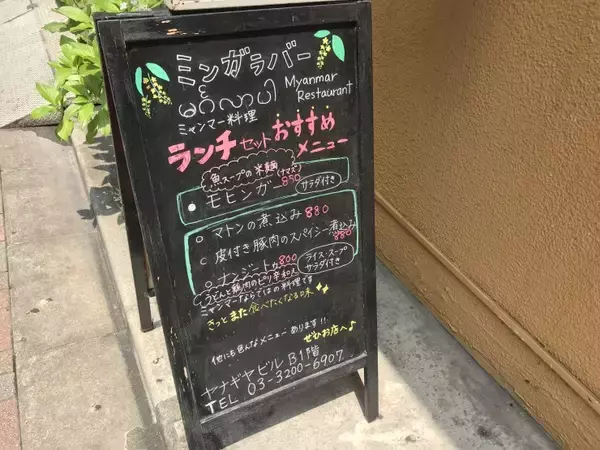 ミンガラバー
မင်္ဂလာပါ
Myanmar
Restaurant
ミャンマー料理
ランチセットおすすめ
メニュー
魚スープの米麺(ナマズ)
モヒンガー 850 サラダ付き
マトンの煮込み 880
皮付き豚肉のスパイシー煮込み
880
ナンジートゥ 800
ライス・スープ
サラダ付き
うどんと鶏肉のピリ辛和え
ミャンマーならではの料理です
きっとまた食べたくなる味
他にも色んなメニューあります!!
ぜひお店へ♪
ヤナギヤビル B1階
TEL 03-3200-6907